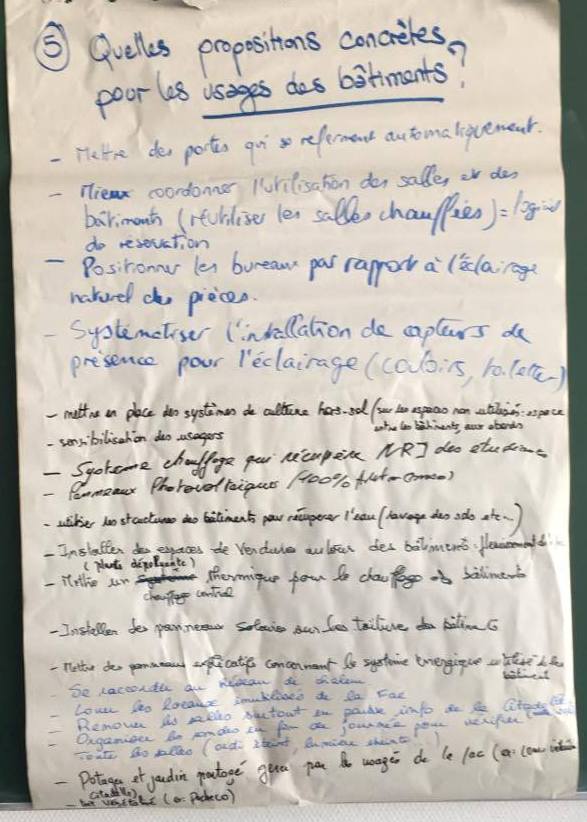 ⑤ Quelles propositions concrètes
pour les usages des bâtiments ?
- Mettre des portes qui se referment automatiquement.
- Mieux coordonner l'utilisation des salles et des
bâtiments (réutiliser les salles chauffées) = logiciel
de réservation
- Positionner les bureaux par rapport à l'éclairage
naturel des pièces.
- Systématiser l'installation de capteurs de
présence pour l'éclairage (couloirs, toilette)
- mettre en place des systèmes de culture hors-sol (sur les espaces non utilisés : espace
entre les bâtiments, aux abords
- sensibilisation des usagers
- Système chauffage qui récupère NRJ des étudiants
- Panneaux Photovoltaïques (100%
- utiliser les structures des bâtiments pour récuperer l'eau (lavage des sols etc...)
- Installer des espaces de Verdure autour des bâtiments :
(plante dépolluante)
- Mettre un système thermique pour le chauffage des bâtiments
chauffage central
- Installer des panneaux solaires sur les toiture des bâtiments
- Mettre des panneaux explicatifs concernant le système énergique utilisé
bâtiment
- Se raccorder au réseau de chaleur
- Louer les locaux inutilisés de la Fac
- Renover les salles surtout en pause info de la citadelle
- Organiser les rondes en fin de journée pour vérifier
toute les salles (ordi éteint, lumière éteinte)
- Potager et jardin partagé gerer par les usagés de la fac
citadelle)
- toit végétalisé (ex: Pacheco)